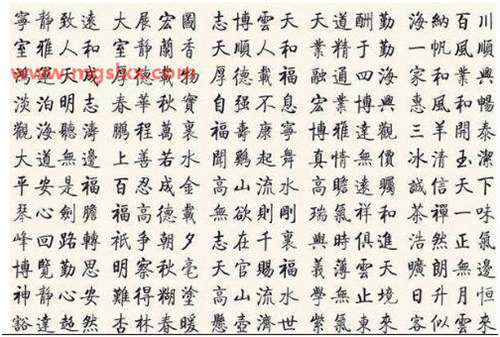 寧靜致遠 大展宏圖 志博雲天 天道酬勤 海納百川
室雅人和 室靜蘭香 順人和 業精于勤 一帆風順
www.mgslxx.com
鴻運天成 厚德載物 厚德載福 融通四海 興業興
淡泊明志 春華秋實 自強不息 宏業博興 惠風和暢
觀海聽濤 鵬程萬裏 福壽康寧 博雅達觀 三羊開泰
大道無邊 上善若水 聞鷄起舞 真情無價 冰清玉潔
平安是福 百忍成金 高山流水 高瞻遠矚 誠信天下
琴心劍膽 福高德載 無欲則剛 瑞氣祥和 茶禪一味
峰回路轉 祇爭朝夕 志在千裏 與時俱進 浩然正氣
博覽勤思 明察秋毫 天官賜福 義薄雲天 曠朗無邊
神靜心安 難得糊塗 高山福水 學無止境 日升月恒
豁達超然 杏林春暖 懸壺濟世 紫氣東來 客似雲來